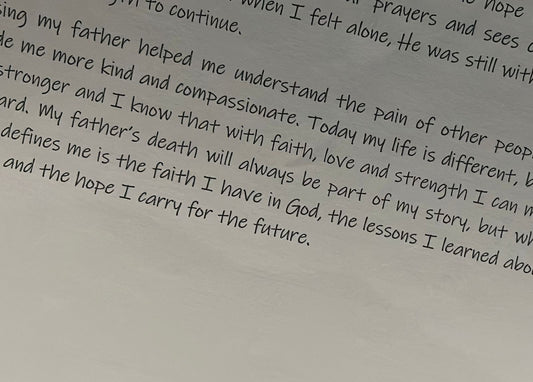 prayers and sees
to continue.
when I felt alone, He was still with
my father helped me understand the pain of other
me more kind and compassionate. Today my life is different,
stronger and I know that with faith, love and strength I can
My father's death will always be part of my story, but
defines me is the faith I have in God, the lessons I learned
and the hope I carry for the future.